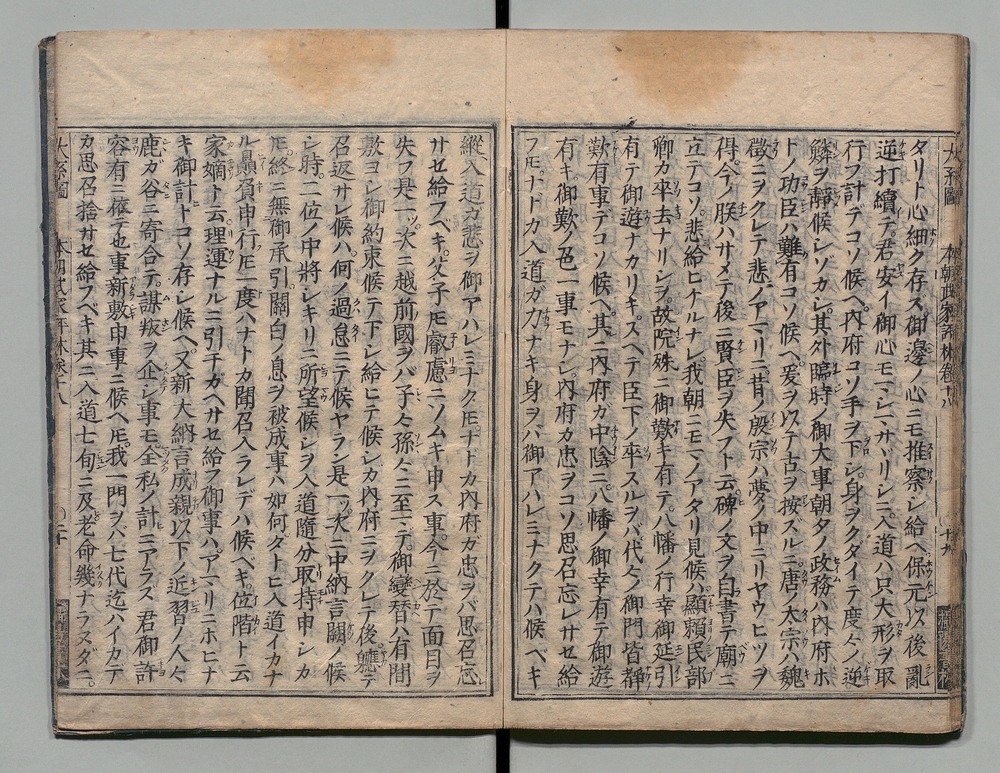 本朝武家評林卷十八
十九
タリト心細ク存ス御邊ノ心ニモ推察シ給ヘ保元以後亂
逆打續テ君安イ御心モマシマサヾリシニ入道ハ只大形ヲ取
行フ計デコソ候ヘ内府コソ手ヲ下シ身ヲクダイテ度々ノ逆
鱗ヲ靜候シゾカシ其外臨時ノ御大事朝夕ノ政務ハ内府ホ
トノ功臣ハ難有コソ候ヘ爰ヲ以テ古ヲ按ズルニ唐ノ太宗ハ魏
徴ニヲクレテ悲ノアマリニ昔ノ殷宗ハ夢ノ中ニリヤウヒツヲ
得今ノ朕ハサメテ後ニ賢臣ヲ失フト云碑ノ文ヲ白書テ廟ニ
立テコソ悲給ヒトルナレ我朝ニモマノアタリ見候ハ顯頼民部
卿カ卒去ナリシヲ故院殊ニ御歎キ有テ八幡ノ行幸御延引
有テ御遊ナカリキスヘテ臣下ノ卒スルヲバ代々ノ御門皆靜
歎有事テコソ候ヘ其ニ内府カ中陰ニ八幡ノ御幸有テ御遊
有キ御歎ノ色一事モナシ内府カ忠ヲコソ思召忘レサセ給
フモナトカ入道ガ力ナキ身ヲバ御アハレミナクテハ候ベキ
縱入道カ悲ヲ御アハレミナクモナドカ内府ガ忠ヲバ思召忘
サセ給フベキ父子モ叡慮ニソムキ申ス事今ニ於テ面目ヲ
失フ是一ッ次ニ越前國ヲバ子々孫々ニ至マデ御變替ハ有間
敷ヨシ御約束候テ下シ給ヒテ候シカ内府ニヲクレテ後軈テ
召返サレ候ハ何ノ過怠ニテ候ヤラン是一ッ次ニ中納言闕ノ候
シ時二位ノ中將シキリニ所望候シヲ入道隨分取持申シカ
モ終ニ無御承引關白ノ息ヲ被成事ハ如何タトヒ入道イカナ
ル贔負申行モ一度ハナトカ聞召入ラレデハ候ベキ位階ト云
家嫡ト云理運ナルニ引チガヘサセ給フ御事ハアマリニホヒナ
キ御計トコソ存シ候ヘ又新大納言成親以下ノ近習ノ人々
鹿ガ谷ニ寄合テ謀叛ヲ企シ事モ全私ノ計ニアラズ君御許
容有ニ依テ也事新敷申事ニ候ヘモ我一門ヲハ七代迄ハイカデ
カ思召捨サセ給フベキ其ニ入道七旬ニ及老命幾ナラヌダニ
大系圖
本朝武家評林卷十八
二十